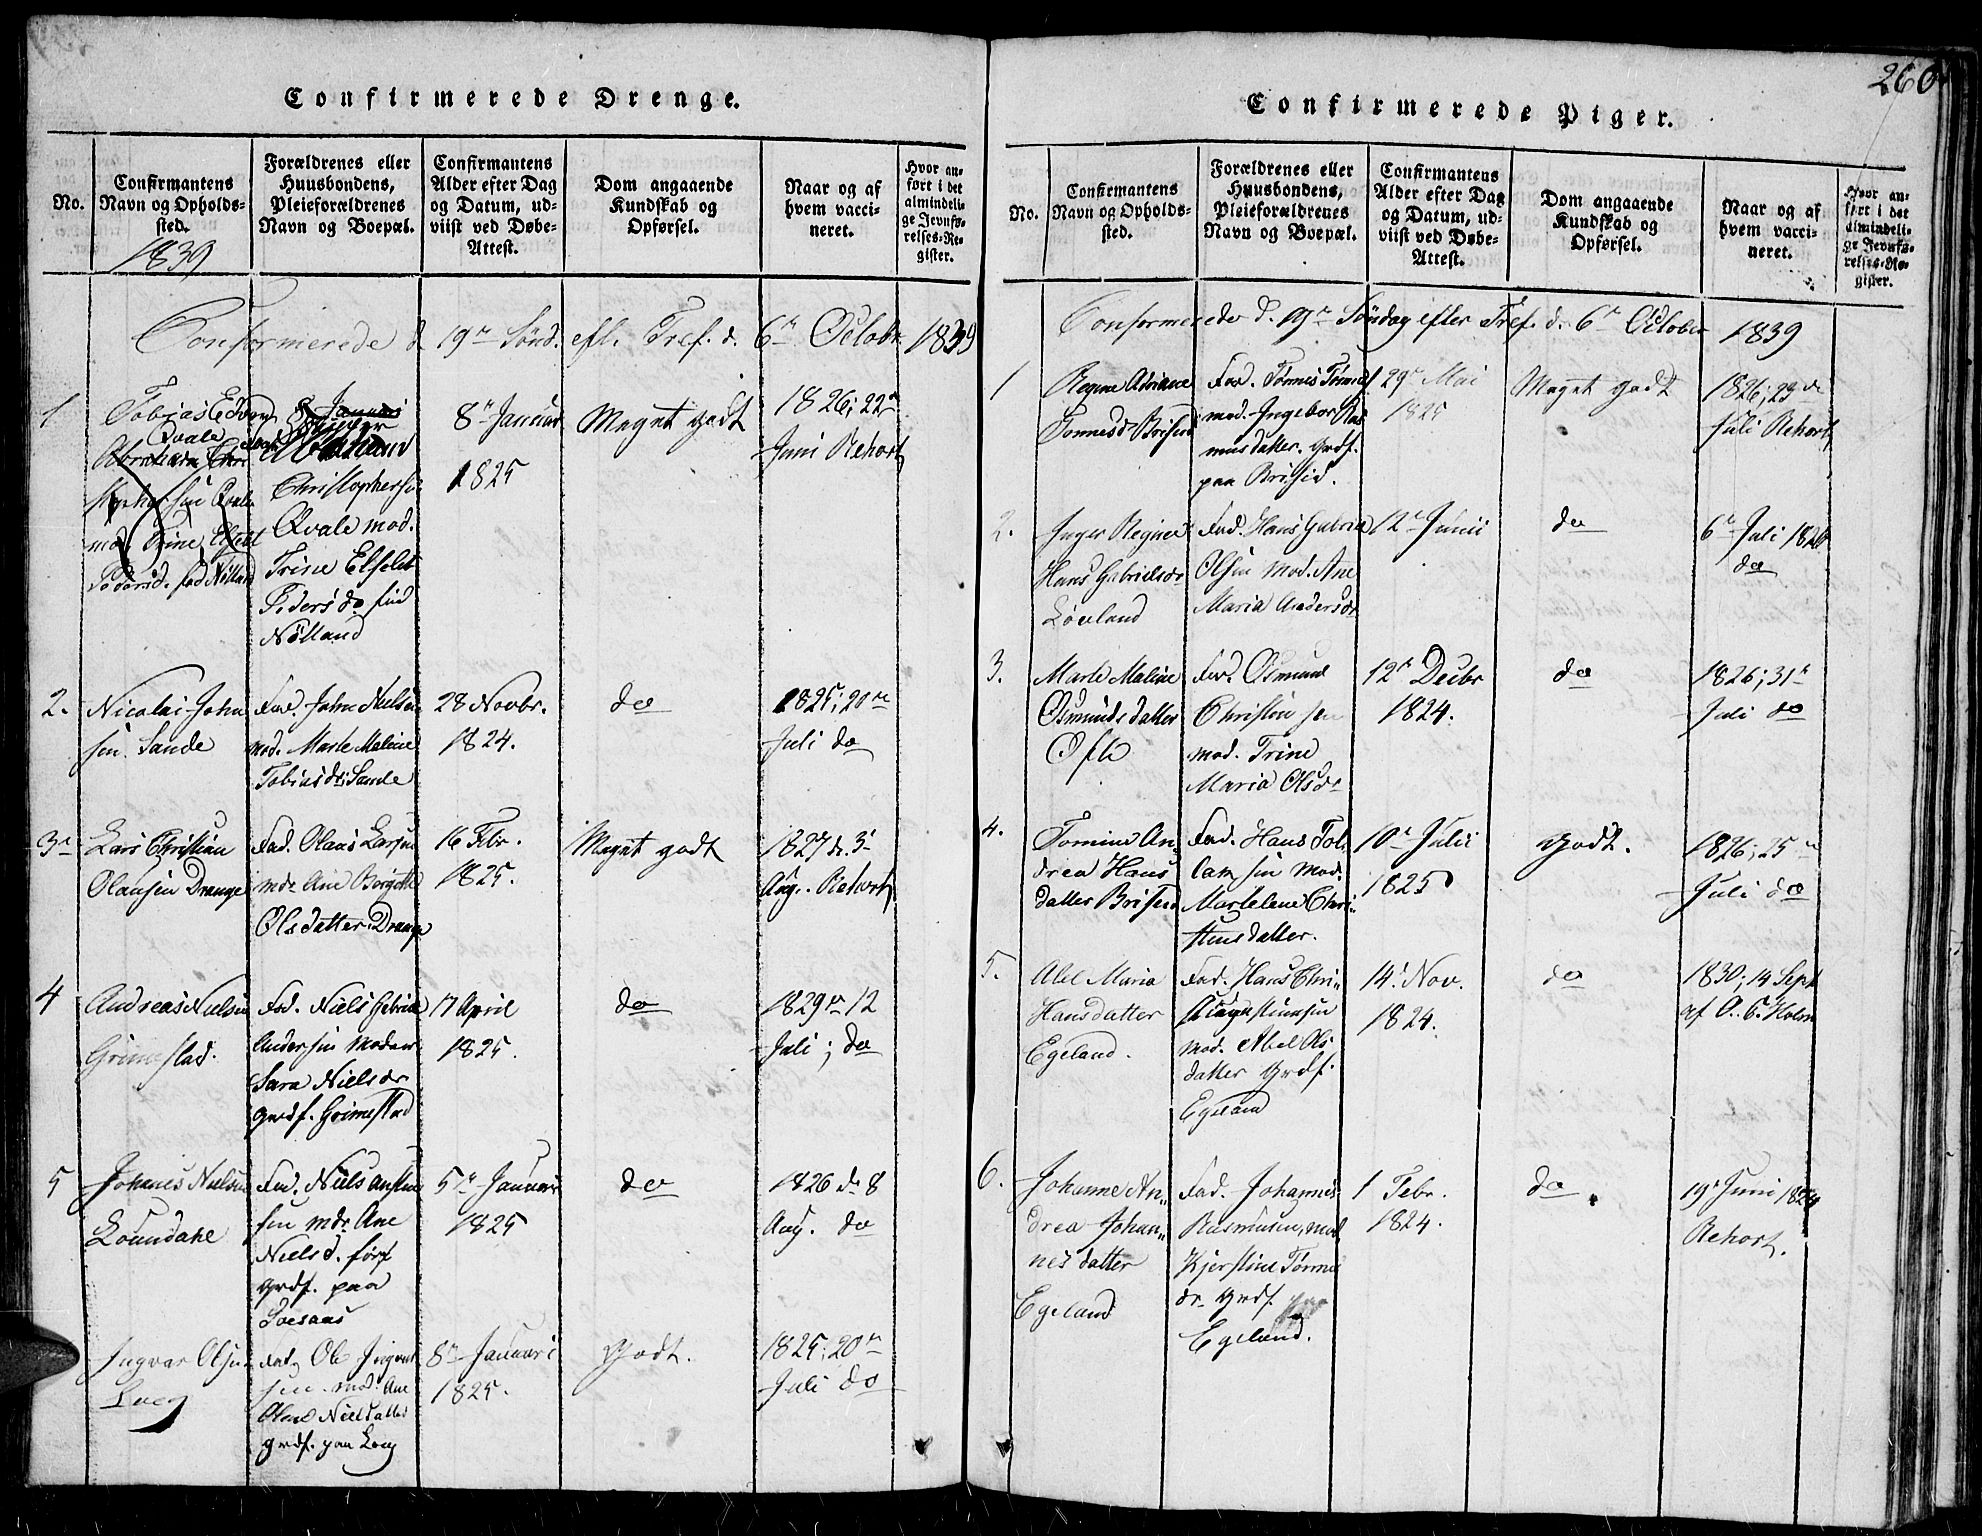 Confirmerede Drenge.
No.
Confirmantens
Navn og Opholds-
sted.
1839
Forældrenes eller
Huusbondens,
Pleieforældrenes
Navn og Boepæl.
Confirmantens
Alder efter Dag
og Datum, ud-
viist ved Døbe-
Attest.
Dom angaaende
Kundskab og
Opførsel.
Naar og af
hvem vacci-
neret.
Hvor an-
ført i det
almindeli-
ge Jevnfø-
relses-Re-
gister.
Confirmerede d. 19de Sönd. eft. Tref. d. 6te Octobr. 1839
1
Tobias
Qvale
Abraham Chri
Qvale
mod. Trine
Christophersen
Qvale mod.
Trine
Pedersdr. fød
Nölland
8de Januar
1825
Meget godt
1826; 22de
Juni Rehort
2.
Nicolai John
sen Sande
Fad. John Nielsen
mod. Marte Malene
Tobiasdr. Sande
28 Novbr.
1824.
do
1825; 20de
Juli do
3
Lars Christian
Olausen Drange
Fad. Olaus Larsen
mdr. Ane Borgitte
Olsdatter Drange
16 Febr.
1825.
Meget godt
1827 d. 3
Aug. Rehort
4
Andreas Nielsen
Grimestad.
Fad. Niels Gabriel
Andersen moderen
Sara Nielsdr
grdf. Grimestad
17 April
1825.
do
1829 12
Juli; do
5
Johanes Nielsen
Fad. Niels
sen mdr. Ane
Nielsd.
grdf. paa
5te Januar
1825
do
1826 d. 8
Aug. do
Ingvar Olsen
Fad. Ole Ingvar
sen mod. Ane
Nielsdatter
grdf. paa
8de Januari
1825.
Godt.
1825; 20de
Juli do
260
Confirmerede Piger.
No.
Confirmantens
Navn og Opholds-
sted.
Forældrenes eller
Huusbondens,
Pleieforældrenes
Navn og Boepæl.
Confirmantens
Alder efter Dag
og Datum, ud-
viist ved Døbe-
Attest.
Dom angaaende
Kundskab og
Opførsel.
Naar og af
hvem vacci-
neret.
Hvor an-
ført i det
almindeli-
ge Jevnfø-
relses-Re-
gister.
Confermerede d. 19de Söndag efter Tref. d. 6te October 1839
1
Regine Adriane
Tønnesd. Briseid
Fad. Tønnes Tønnes
mod. Ingebor Ras
musdatter. Grdf.
paa Briseid.
29de Mai
1825
Meget godt
1826; 23de
Juli Rehort
2.
Inger Regine
Hans Gabrielsdr
Løvland
Fad. Hans Gabriel
Olsen mod. Ane
Maria Andersdr
12te Junii
do
6te Juli 1826
do
3.
Marte Maline
Osmundsdatter
Øfte
Fad. Osmund
Christen sen
mod. Trine
Maria Olsdr
12te Decbr
1824.
do
1826; 31te
Juli do
4.
Tomine An
drea Hans
datter Briseid
Fad. Hans Tol
lam sen mod.
Martelene Chri
stensdatter.
10de Julii
1825
Godt.
1826; 25de
Juli do
5.
Abel Maria
Hansdatter
Egeland.
Fad. Hans Chri
mod. Abel Ols
datter Grdf.
Egeland
14. Nov.
1824.
do
1830; 14 Sept
af O. C. Holm
6.
Johanne An
drea Johan
nesdatter
Egeland
Fad. Johannes
Rasmusen, mod
Kjerstine Tønnes
dr. Grdf. paa
Egeland.
1 Febr.
1824.
do
19de Juni
Rehort.